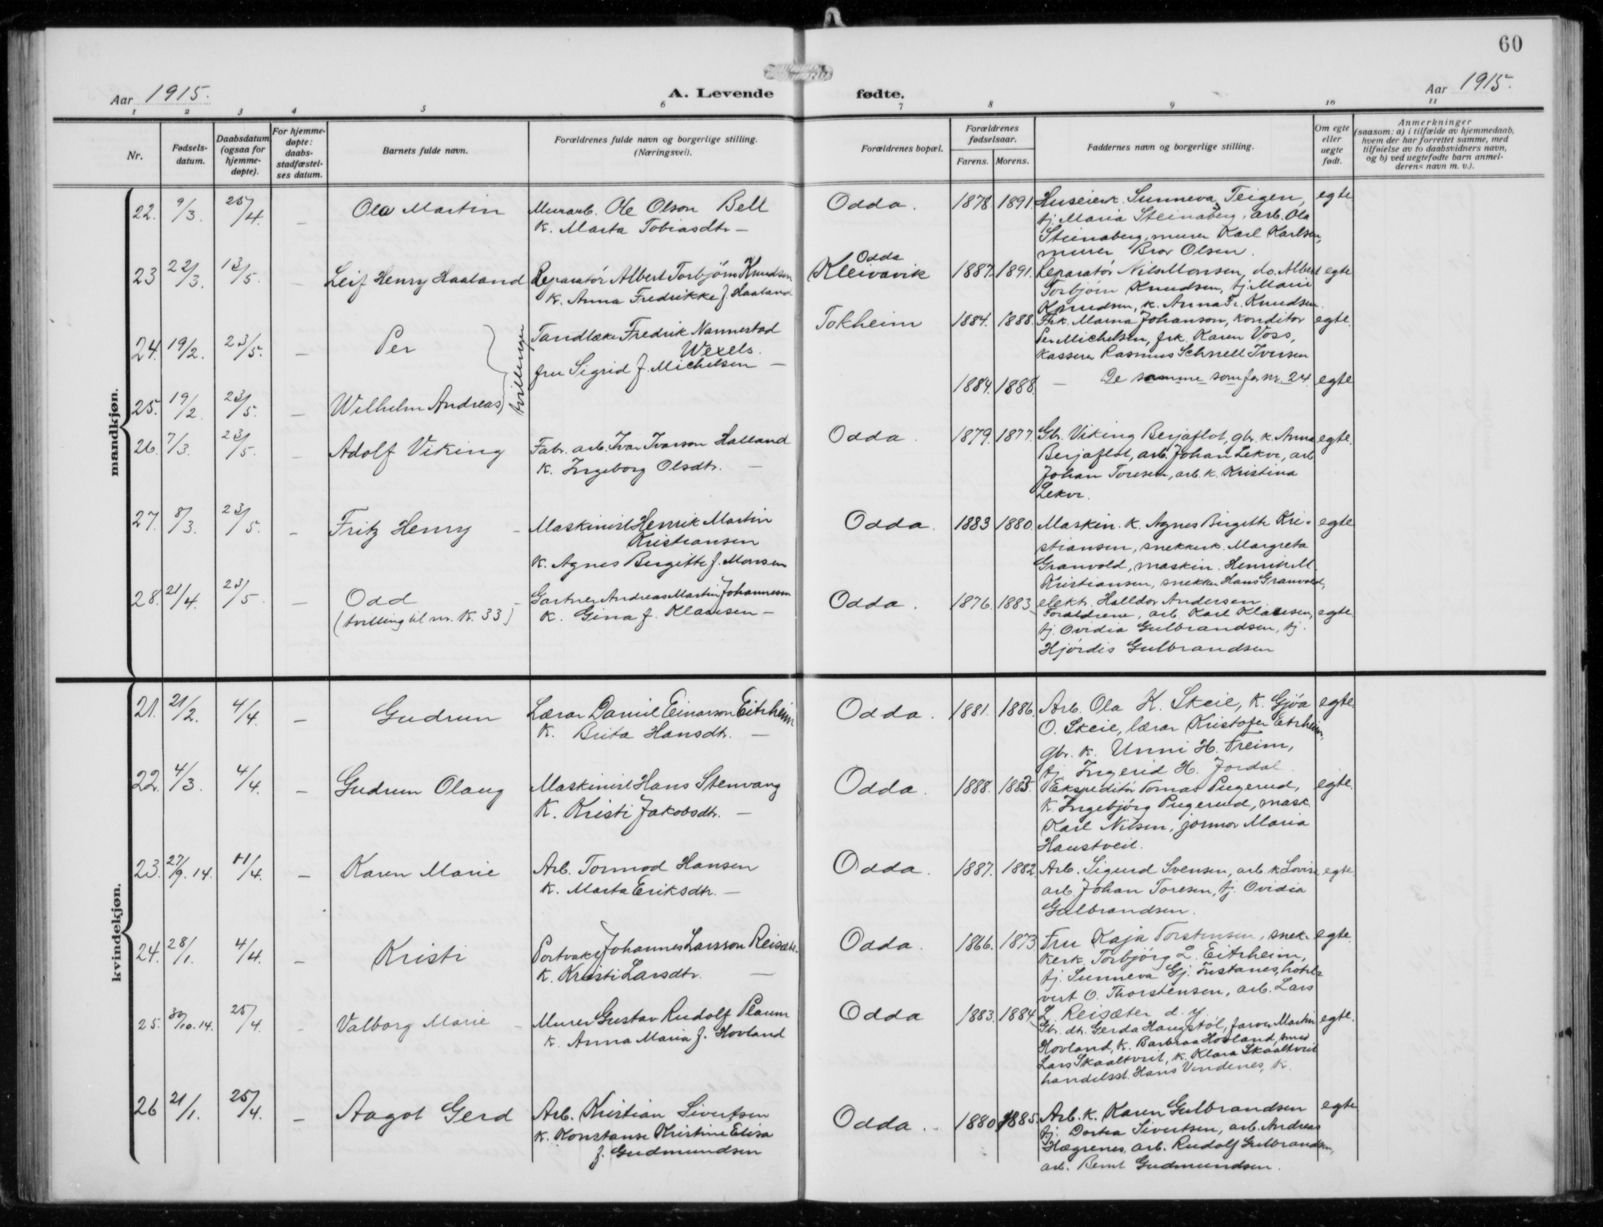 60
Aar 1915.
A. Levende fødte.
Aar 1915.
1 2 3 4 5 6 7 8 9 10 11
Nr.
Fødsels-
datum.
Daabsdatum
(ogsaa for
hjemme-
døpte).
For hjemme-
døpte:
daabs-
stadfæstel-
ses datum.
Barnets fulde navn.
Forældrenes fulde navn og borgerlige stilling.
(Næringsvei).
Forældrenes bopæl.
Forældrenes
fødselsaar.
Farens. Morens.
Faddernes navn og borgerlige stilling.
Om egte
eller
uegte
født.
Anmerkninger
(saasom: a) i tilfælde av hjemmedaab,
hvem der har forrettet samme, med
tilføielse av to daabsvidners navn,
og b) ved uegtefødte barn anmel-
derens navn m. v.).
mandkjøn.
22. 9/3. 25/4. – Ola Martin
Murarb. Ole Olson Bell
k. Marta Tobiasdtr –
Odda. 1878 1891
Huseierk. Sunneva Teigen,
tj. Maria Steinaberg, arb. Ola
Steinaberg, murer Karl Karlsen,
murer Bror Olsen.
egte
23 22/3. 13/5. – Leif Henry Haaland
Reparatør Albert Torbjörn Knudsen
k. Anna Fredrikke f. Haaland
Odda
Kleivavik 1887. 1891.
Reparatör Nils Monsen, do. Albert
Torbjörn Knudsen, tj. Marie
Knudsen, k. Anna Fr. Knudsen
egte
24. 19/2. 23/5. – Per
tvillinger
Tandlæke Fredrik Nannestad
Wexels.
fru Sigrid f. Michelsen –
Tokheim 1884. 1888.
Frk. Marna Johanson, konditor
Per Michelsen, frk. Karen Voss,
kasserer Rasmus Schnell Iversen
egte.
25. 19/2 23/5. – Wilhelm Andreas
1884. 1888. – De samme som for nr. 24. egte
26. 7/3. 23/5. – Adolf Viking
Fabr. arb. Ivar Ivarson Halland
k. Ingeborg Olsdtr. –
Odda. 1879. 1877.
Gbr. Viking Berjaflot, gbr. k. Anna
Berjaflot, arb. Johan Lekve, arb
Johan Toresen, arb. k. Kristina
Lekve.
egte.
27. 8/3. 23/5. – Fritz Henry
Maskinist Henrik Martin
Kristiansen
k. Agnes Birgitte f. Monsen
Odda. 1883 1880.
Maskin. k. Agnes Birgitte Kri-
stiansen, snekkerk. Margreta
Granvold, maskin. Henrik M.
Kristiansen, snekker Hans Granvold,
elektr. Halldor Andersen.
egte
28. 21/4. 23/5 – Odd
(tvilling til nr. K. 33)
Gartner Andreas Martin Johannesen
k. Gina f. Klausen –
Odda. 1876. 1883.
Forældrene, arb. Karl Klausen,
tj. Ovidia Gulbrandsen, tj.
Hjördis Gulbrandsen
egte.
kvindekjøn.
21. 21/2. 4/4. – Gudrun
Lærar Daniel Einarson Eitrheim
k. Brita Hansdtr. –
Odda. 1881. 1886.
Arb. Ola K. Skeie, k. Gjöa
O. Skeie, lærar Kristofer Eitrheim,
gbr. k. Unni H. Freim,
tj. Ingerid H. Jordal.
egte
22. 4/3. 4/4. – Gudrun Olaug
Maskinist Hans Stenvang
k. Kristi Jakobsdtr. –
Odda. 1888. 1883.
Ekspeditör Tomas Pugerud,
k. Ingebjörg Pugerud, mask.
Karl Nilsen, jormor Maria
Haustveit.
egte
23. 27/9. 14. 11/4. – Karen Marie
Arb. Tormod Hansen
k. Marta Eriksdtr. –
Odda. 1887. 1882
Arb. Sigurd Svensen, arb. k. Lovise
arb. Johan Toresen, tj. Ovidia
Gulbrandsen.
egte
24. 28/1. 4/4. – Kristi
Portvakt Johannes Larsson Reisæter
k. Kristi Larsdtr. –
Odda. 1866. 1873
Fru Kaja Torstensen, snek-
kerk. Torbjörg L. Eitrheim,
tj. Sunneva Gj. Tustanes, hotel-
vert O. Thorstensen, arb. Lars
L. Reisæter d. y.
egte.
25. 30/10. 14. 25/4. Valborg Marie
Murer Gustav Rudolf Plaum
k. Anna Maria f. Hovland
Odda 1883. 1884.
Gbr. dtr. Gerda Haugstøl, farver Martin
Hovland, k. Barbraa Hovland, smed
Lars Skaaltveit, k. Klara Skaaltveit
handelsst. Hans Vindenes, k.
egte.
26 21/1. 25/4. – Aagot Gerd
Arb. Kristian Sivertsen
k. Konstanse Kristine Elisa
f. Gudmundsen
Odda. 1880 1885.
Arb. k. Karen Gulbrandsen
tj. Dortea Sivertsen, arb. Andreas
Hægrenes, arb. Rudolf Gulbrandsen,
arb. Bernt Gudmundsen.
egte